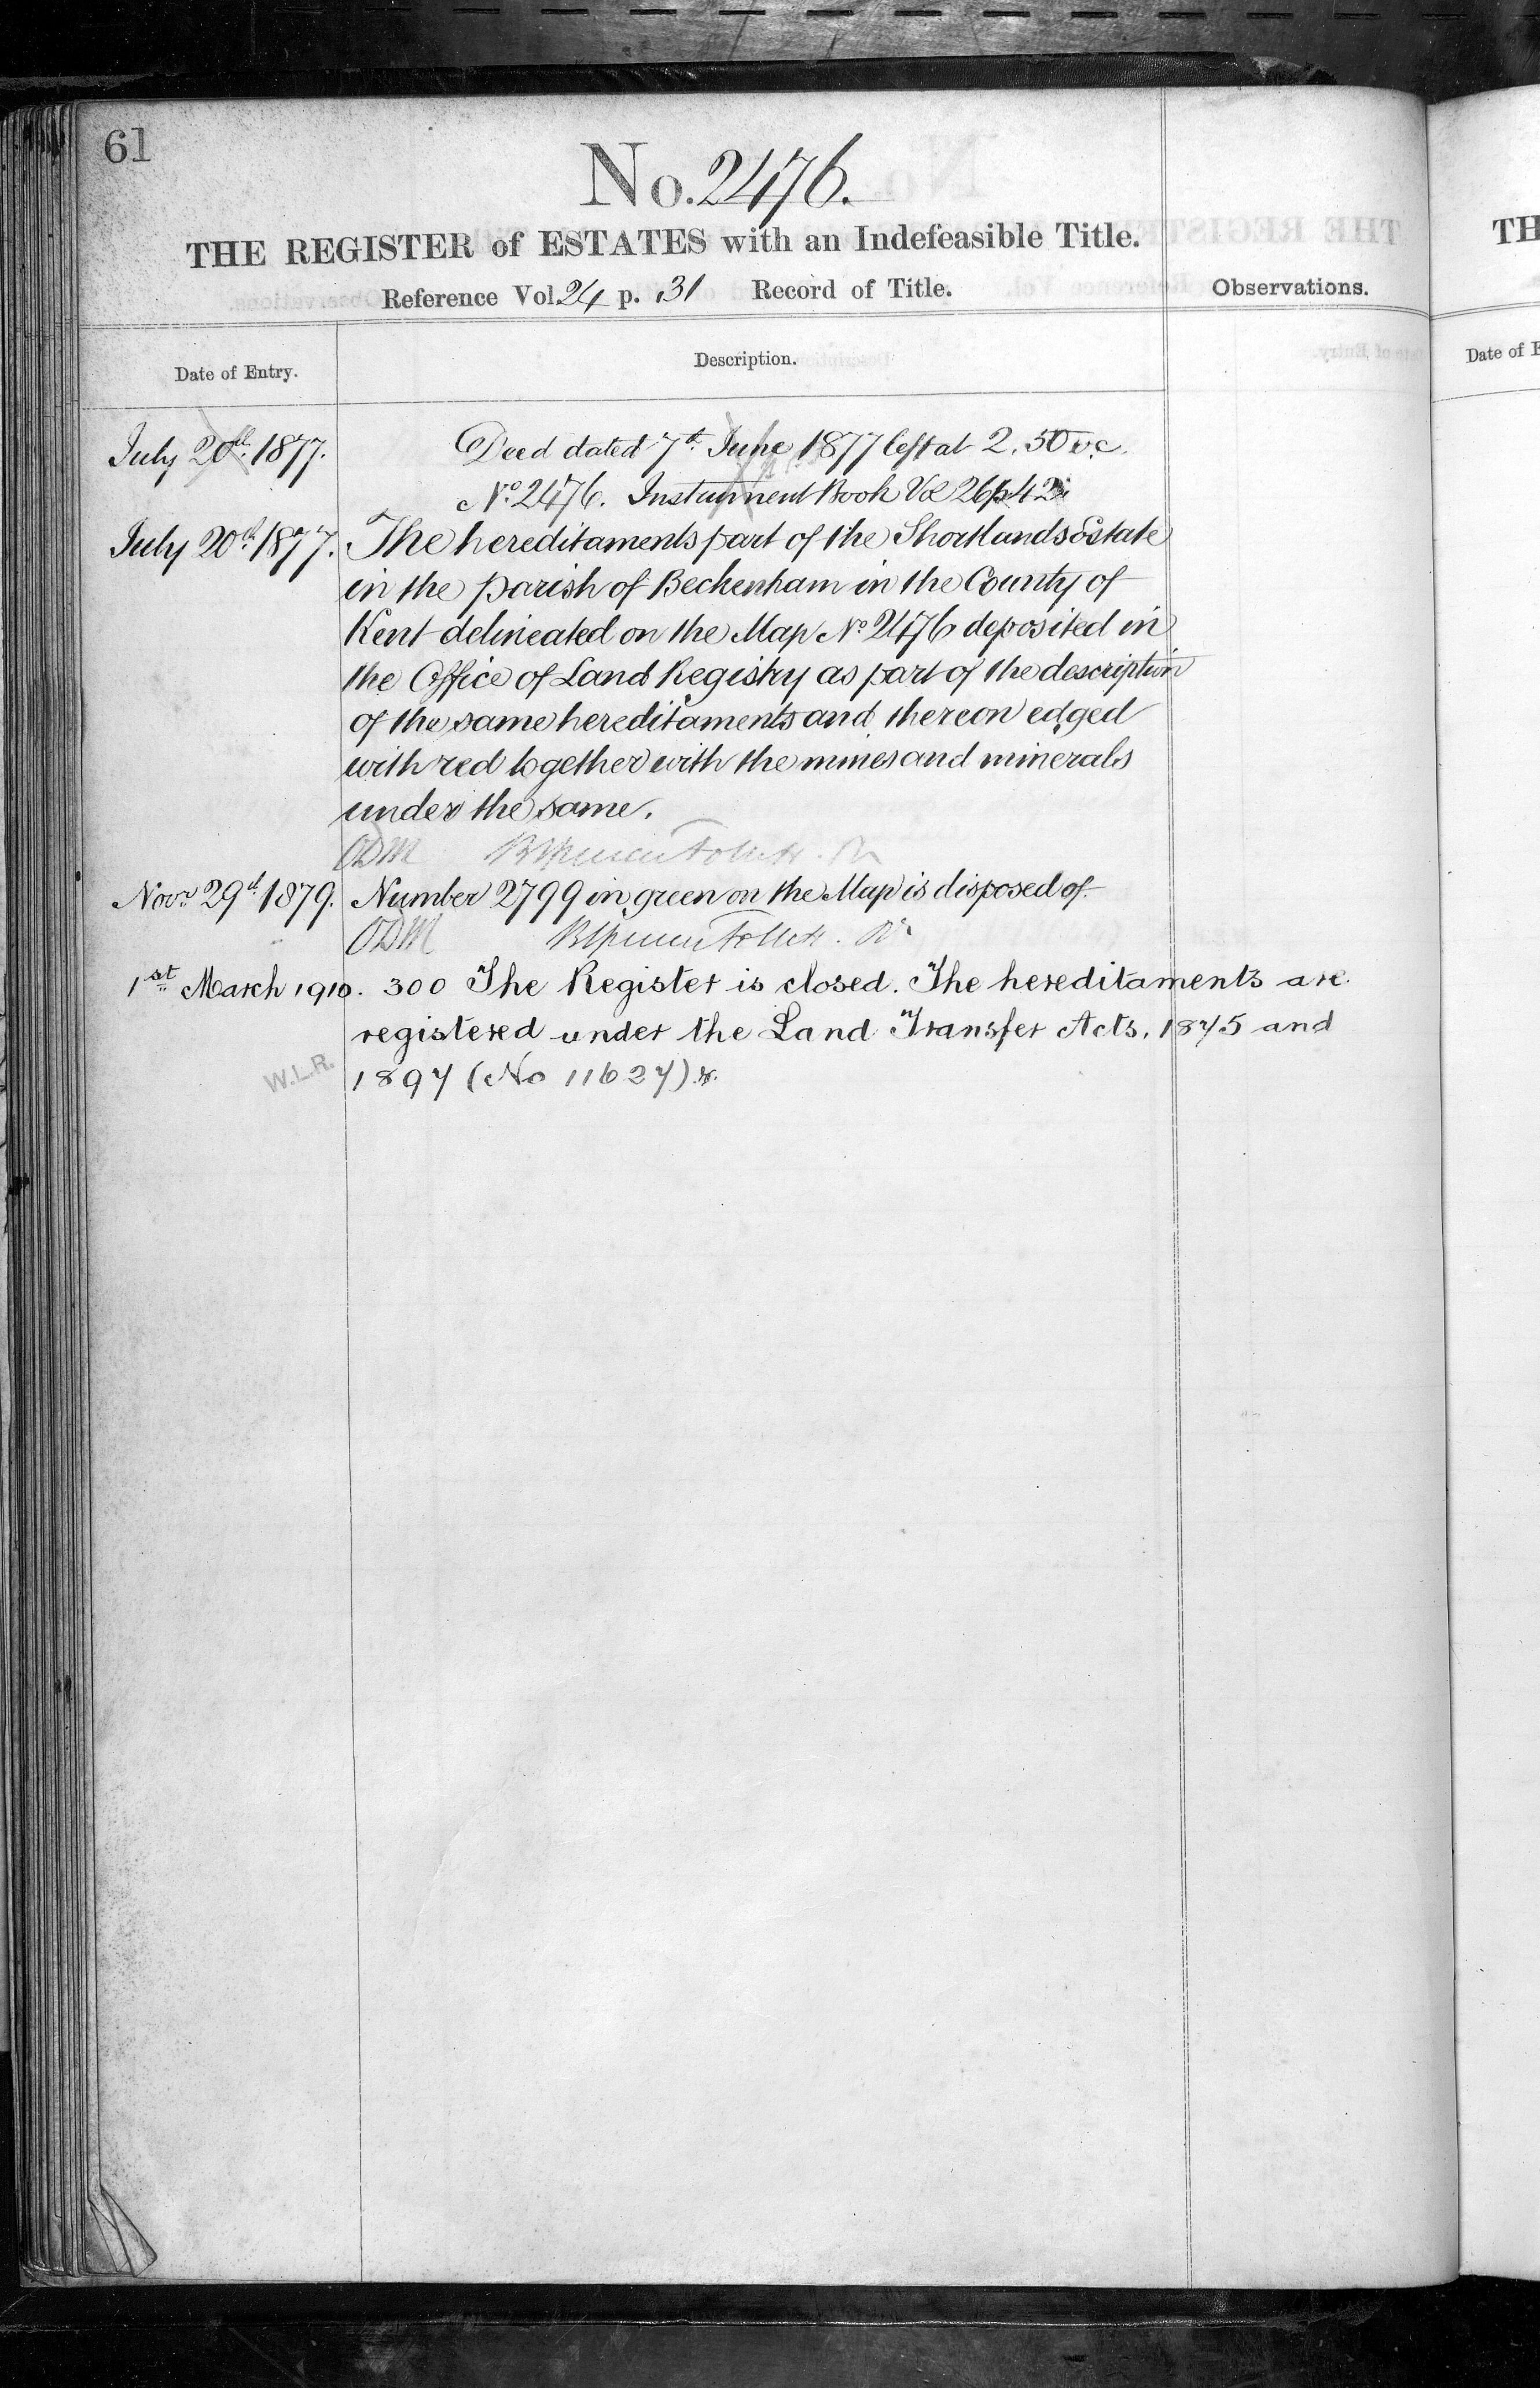 61
No. 2476.
THE REGISTER of ESTATES with an Indefeasible Title.
Reference Vol. 24 p. 31 Record of Title.
Observations.
Date of Entry.
Description.
July 20th 1877. Deed dated 7th June 1877 left at 2.50
No. 2476. Instrument Book Vol 26 p 42
July 20th 1877. The hereditaments part of the Shortlands Estate
in the parish of Beckenham in the County of
Kent delineated on the Map No 2476 deposited in
the Office of Land Registry as part of the description
of the same hereditaments and thereon edged
with red together with the mines and minerals
under the same.
ODM Follett. Rr
Novr 29th 1879. Number 2799 in green on the Map is disposed of
ODM Follett. Rr
1st March 1910. 300 The Register is closed. The hereditaments are
registered under the Land Transfer Acts, 1875 and
W.L.R. 1897 (No 11627)
TH
Date of E